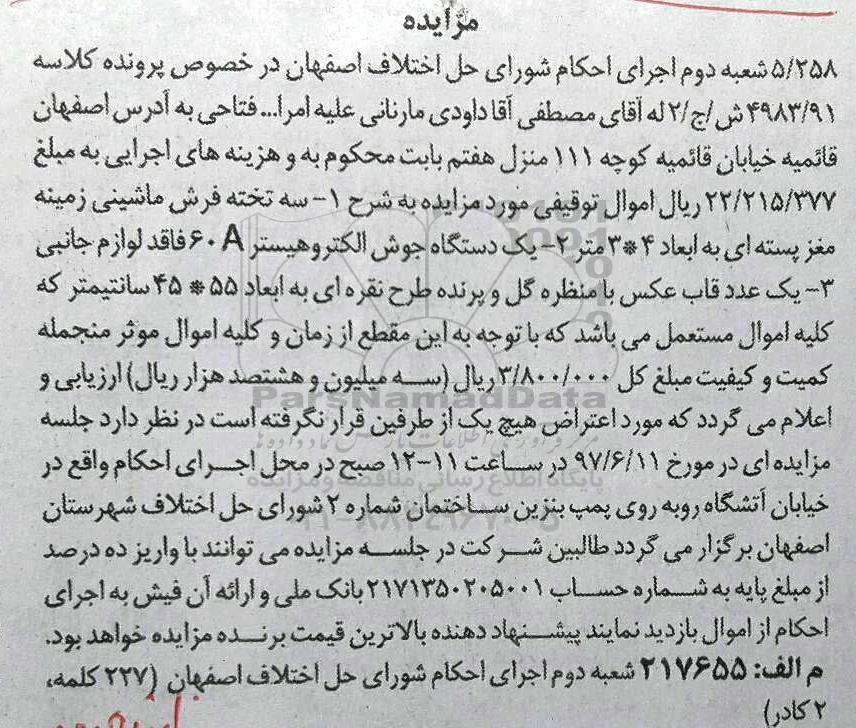 مزایده
۵/۲۵۸ شعبه دوم اجرای احکام شورای حل اختلاف اصفهان در خصوص پرونده کلاسه
۴۹۸۳/۹۱ش/ج/۲ له آقای مصطفی آقا داودی مارنانی علیه امرا... فتاحی به آدرس اصفهان
قائمیه خیابان قائمیه کوچه ۱۱۱ منزل هفتم بابت محکوم به و هزینه های اجرایی به مبلغ
۲۲/۲۱۵/۳۷۷ ریال اموال توقیفی مورد مزایده به شرح ۱- سه تخته فرش ماشینی زمینه
مغز پسته ای به ابعاد ۴*۳ متر ۲- یک دستگاه جوش الکترو هیستر ۶۰A فاقد لوازم جانبی
۳- یک عدد قاب عکس با منظره گل و پرنده طرح نقره ای به ابعاد ۵۵ * ۴۵ سانتیمتر که
کلیه اموال مستعمل می باشد که با توجه به این مقطع از زمان و کلیه اموال موثر منجمله
کمیت و کیفیت مبلغ کل ۳/۸۰۰/۰۰۰ ریال (سه میلیون و هشتصد هزار ریال) ارزیابی و
اعلام می گردد که مورد اعتراض هیچ یک از طرفین قرار نگرفته است در نظر دارد جلسه
مزایده ای در مورخ ۹۷/۶/۱۱ در ساعت ۱۱-۱۲ صبح در محل اجرای احکام واقع در
خیابان آتشگاه روبه روی پمپ بنزین ساختمان شماره ۲ شورای حل اختلاف شهرستان
اصفهان برگزار می گردد طالبین شرکت در جلسه مزایده می توانند با واریز ده درصد
از مبلغ پایه به شماره حساب ۲۱۷۱۳۵۰۲۰۵۰۰۱ بانک ملی و ارائه آن فیش به اجرای
احکام از اموال بازدید نمایند پیشنهاد دهنده بالاترین قیمت برنده مزایده خواهد بود.
م الف: ۲۱۷۶۵۵ شعبه دوم اجرای احکام شورای حل اختلاف اصفهان (۲۲۷ کلمه،
۲ کادر)
ParsNamadData
پایگاه اطلاع رسانی مناقصه و مزایده